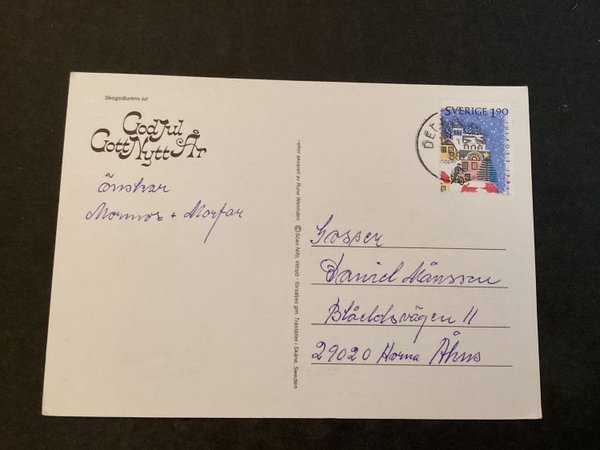 Skogsdjurens jul
God Jul
Gott Nytt År
önskar
Mormor + Morfar
efter akvarell av Rune Wendden
© Scan Nilo, Vinslöv - försäljes gm. Trastältet i Skåne, Sweden
SVERIGE 1.90
Gossen
Daniel Månsson
Blåeldsvägen 11
29020 Horna Åhus